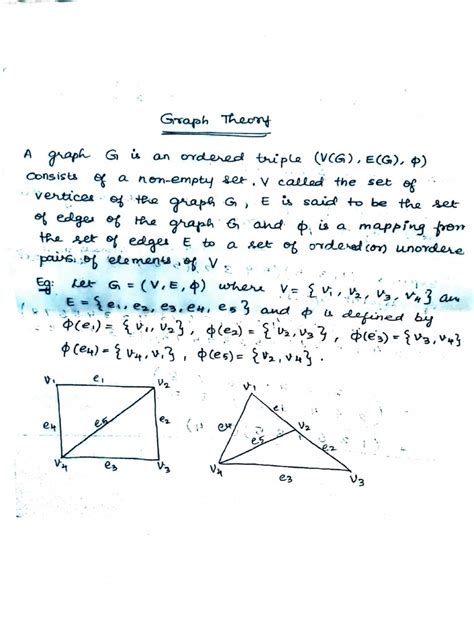 Graph Theory
A graph G is an ordered triple (V(G), E(G), ϕ)
consists of a non-empty set V called the set of
vertices of the graph G, E is said to be the set
of edges of the graph G and ϕ is a mapping from
the set of edges E to a set of ordered (or) unordere
pairs of elements of V.
Eg: Let G = (V, E, ϕ) where V = {v1, v2, v3, v4} an
E = {e1, e2, e3, e4, e5} and ϕ is defined by
ϕ(e1) = {v1, v2}, ϕ(e2) = {v2, v3}, ϕ(e3) = {v3, v4}
ϕ(e4) = {v4, v1}, ϕ(e5) = {v2, v4}.
v1 e1 v2
e4 e5 e2
v4 e3 v3
v1
e1
e4 e5 v2
e2
v4 e3 v3